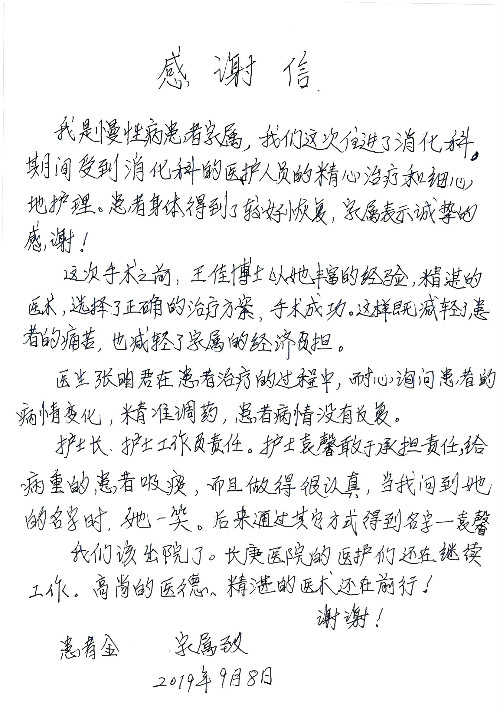 感谢信
我是慢性病患者家属，我们这次住进了消化科。
期间受到消化科的医护人员的精心治疗和细心
地护理。患者身体得到了较好恢复，家属表示诚挚的
感谢！
这次手术之前，王佳博士以她丰富的经验，精湛的
医术，选择了正确的治疗方案，手术成功。这样既减轻了患
者的痛苦，也减轻了家属的经济负担。
医生张明君在患者治疗的过程中，耐心询问患者的
病情变化，精准调药，患者病情没有反复。
护士长、护士工作负责任。护士袁馨敢于承担责任，给
病重的患者吸痰，而且做得很认真，当我问到她
的名字时，她一笑。后来通过其它方式得到名字—袁馨
我们该出院了。长庚医院的医护们还在继续
工作。高尚的医德、精湛的医术还在前行！
谢谢！
患者金 家属致
2019年9月8日